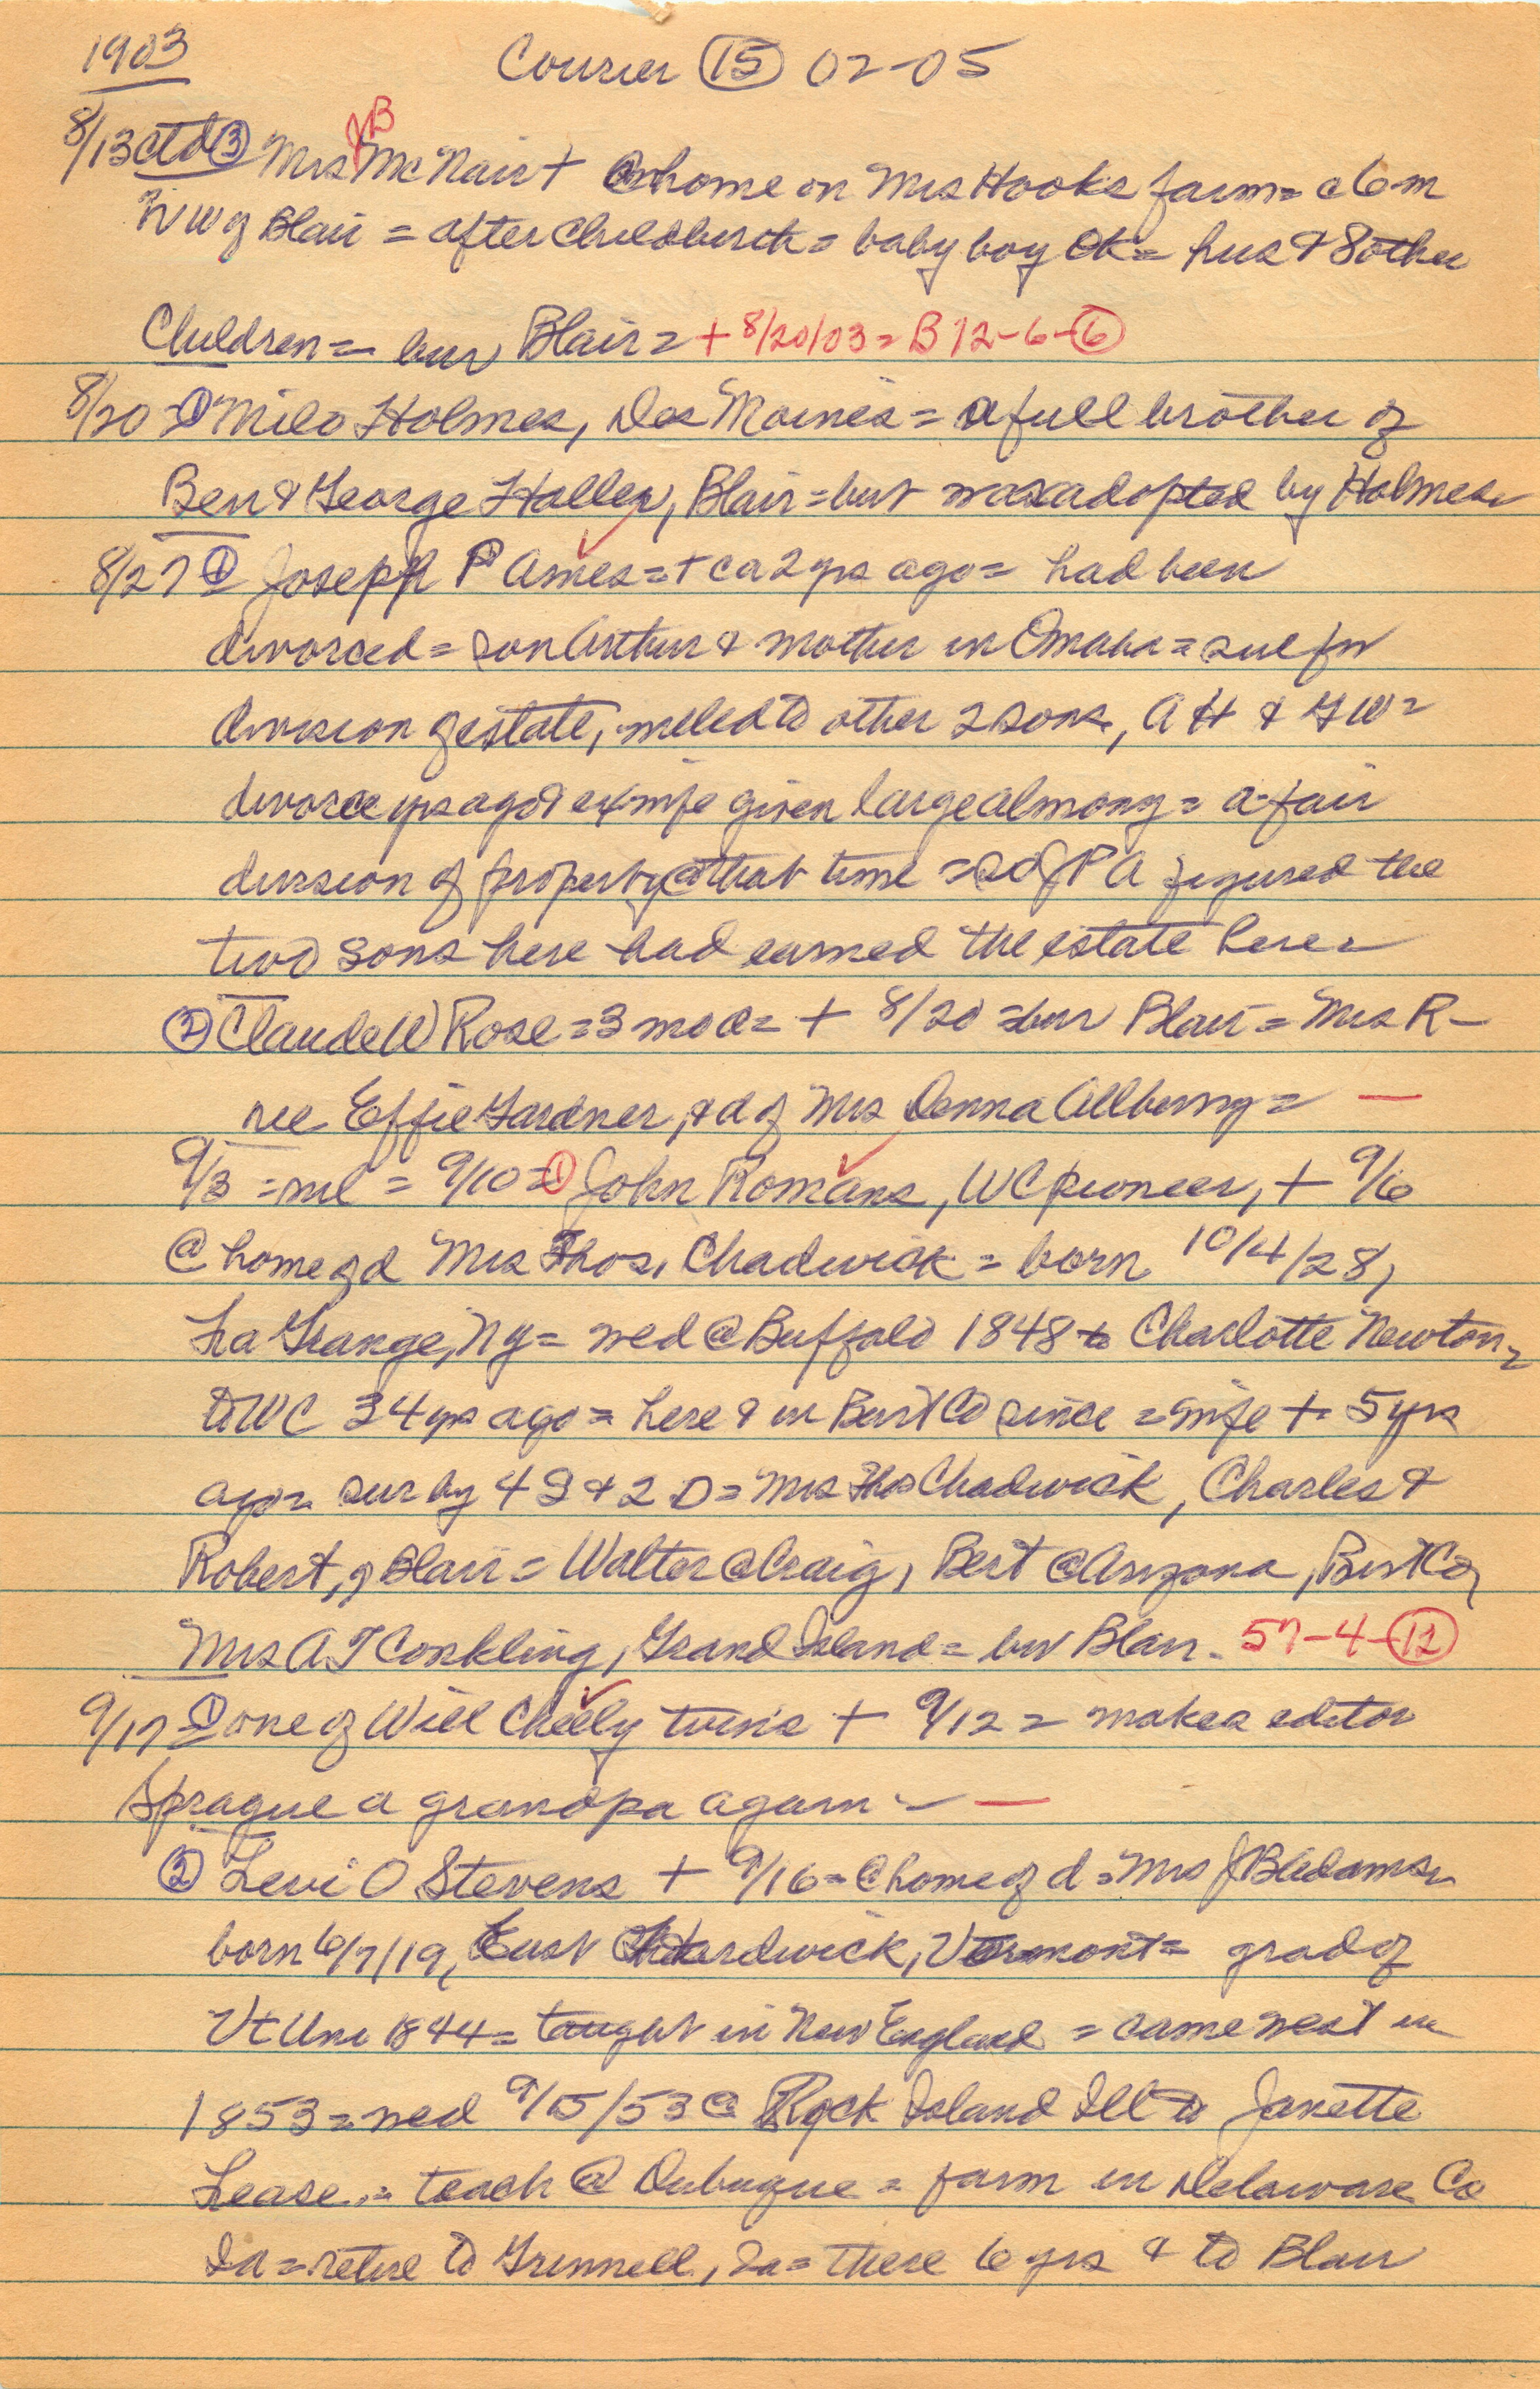 1903
Courier 15 02-05
8/13 ctd 3 Mrs JB McNair + @ home on Mrs Hooks farm = c6m
NW of Blair = after childbirth = baby boy ok = hus & 8 other
Children = bur Blair = + 8/20/03 = B12-6-6
8/20 = 1 Milo Holmes, Des Moines = a full brother of
Ben & George Haller, Blair = but was adopted by Holmes
8/27 1 Joseph P Ames = + ca 2 yrs ago = had been
divorced = son Arthur & mother in Omaha = sue for
division of estate, willed to other 2 sons, AH & GW =
divorce yrs ago & exwife given large almony = a fair
division of property @ that time = so JPA figured the
two sons here had earned the estate here =
2 Claude W Rose = 3 mo = + 8/20 = bur Blair = Mrs R -
nee Effie Gardner, & d of Mrs Denna Allberry = -
9/3 = nil = 9/10 = 1 John Romans, WC pioneer, + 9/6
@ home of d Mrs Thos. Chadwick = born 10/4/28,
La Grange, Ny = wed @ Buffalo 1848 to Charlotte Newton =
to WC 34 yrs ago = here & in Burt Co since = wife + 5 yrs
ago = sur by 4 S & 2 D = Mrs Thos Chadwick, Charles &
Robert, of Blair = Walter @ Craig, Bert @ Arizona, Burt Co,
Mrs AT Conkling, Grand Island = bur Blair. 57-4-12
9/17 1 one of Will Cheely twins + 9/12 = makes editor
Sprague a grandpa again - -
2 Levi O Stevens + 9/16 = @ home of d = Mrs JB Adams =
born 6/7/19, East Hardwick, Vermont = grad of
Vt Uni 1844 = taught in New England = came west in
1853 = wed 9/15/53 @ Rock Island Ill to Janette
Lease. = teach @ Dubuque = farm in Delaware Co
Ia = retire to Grinnell, Ia = there 6 yrs & to Blair